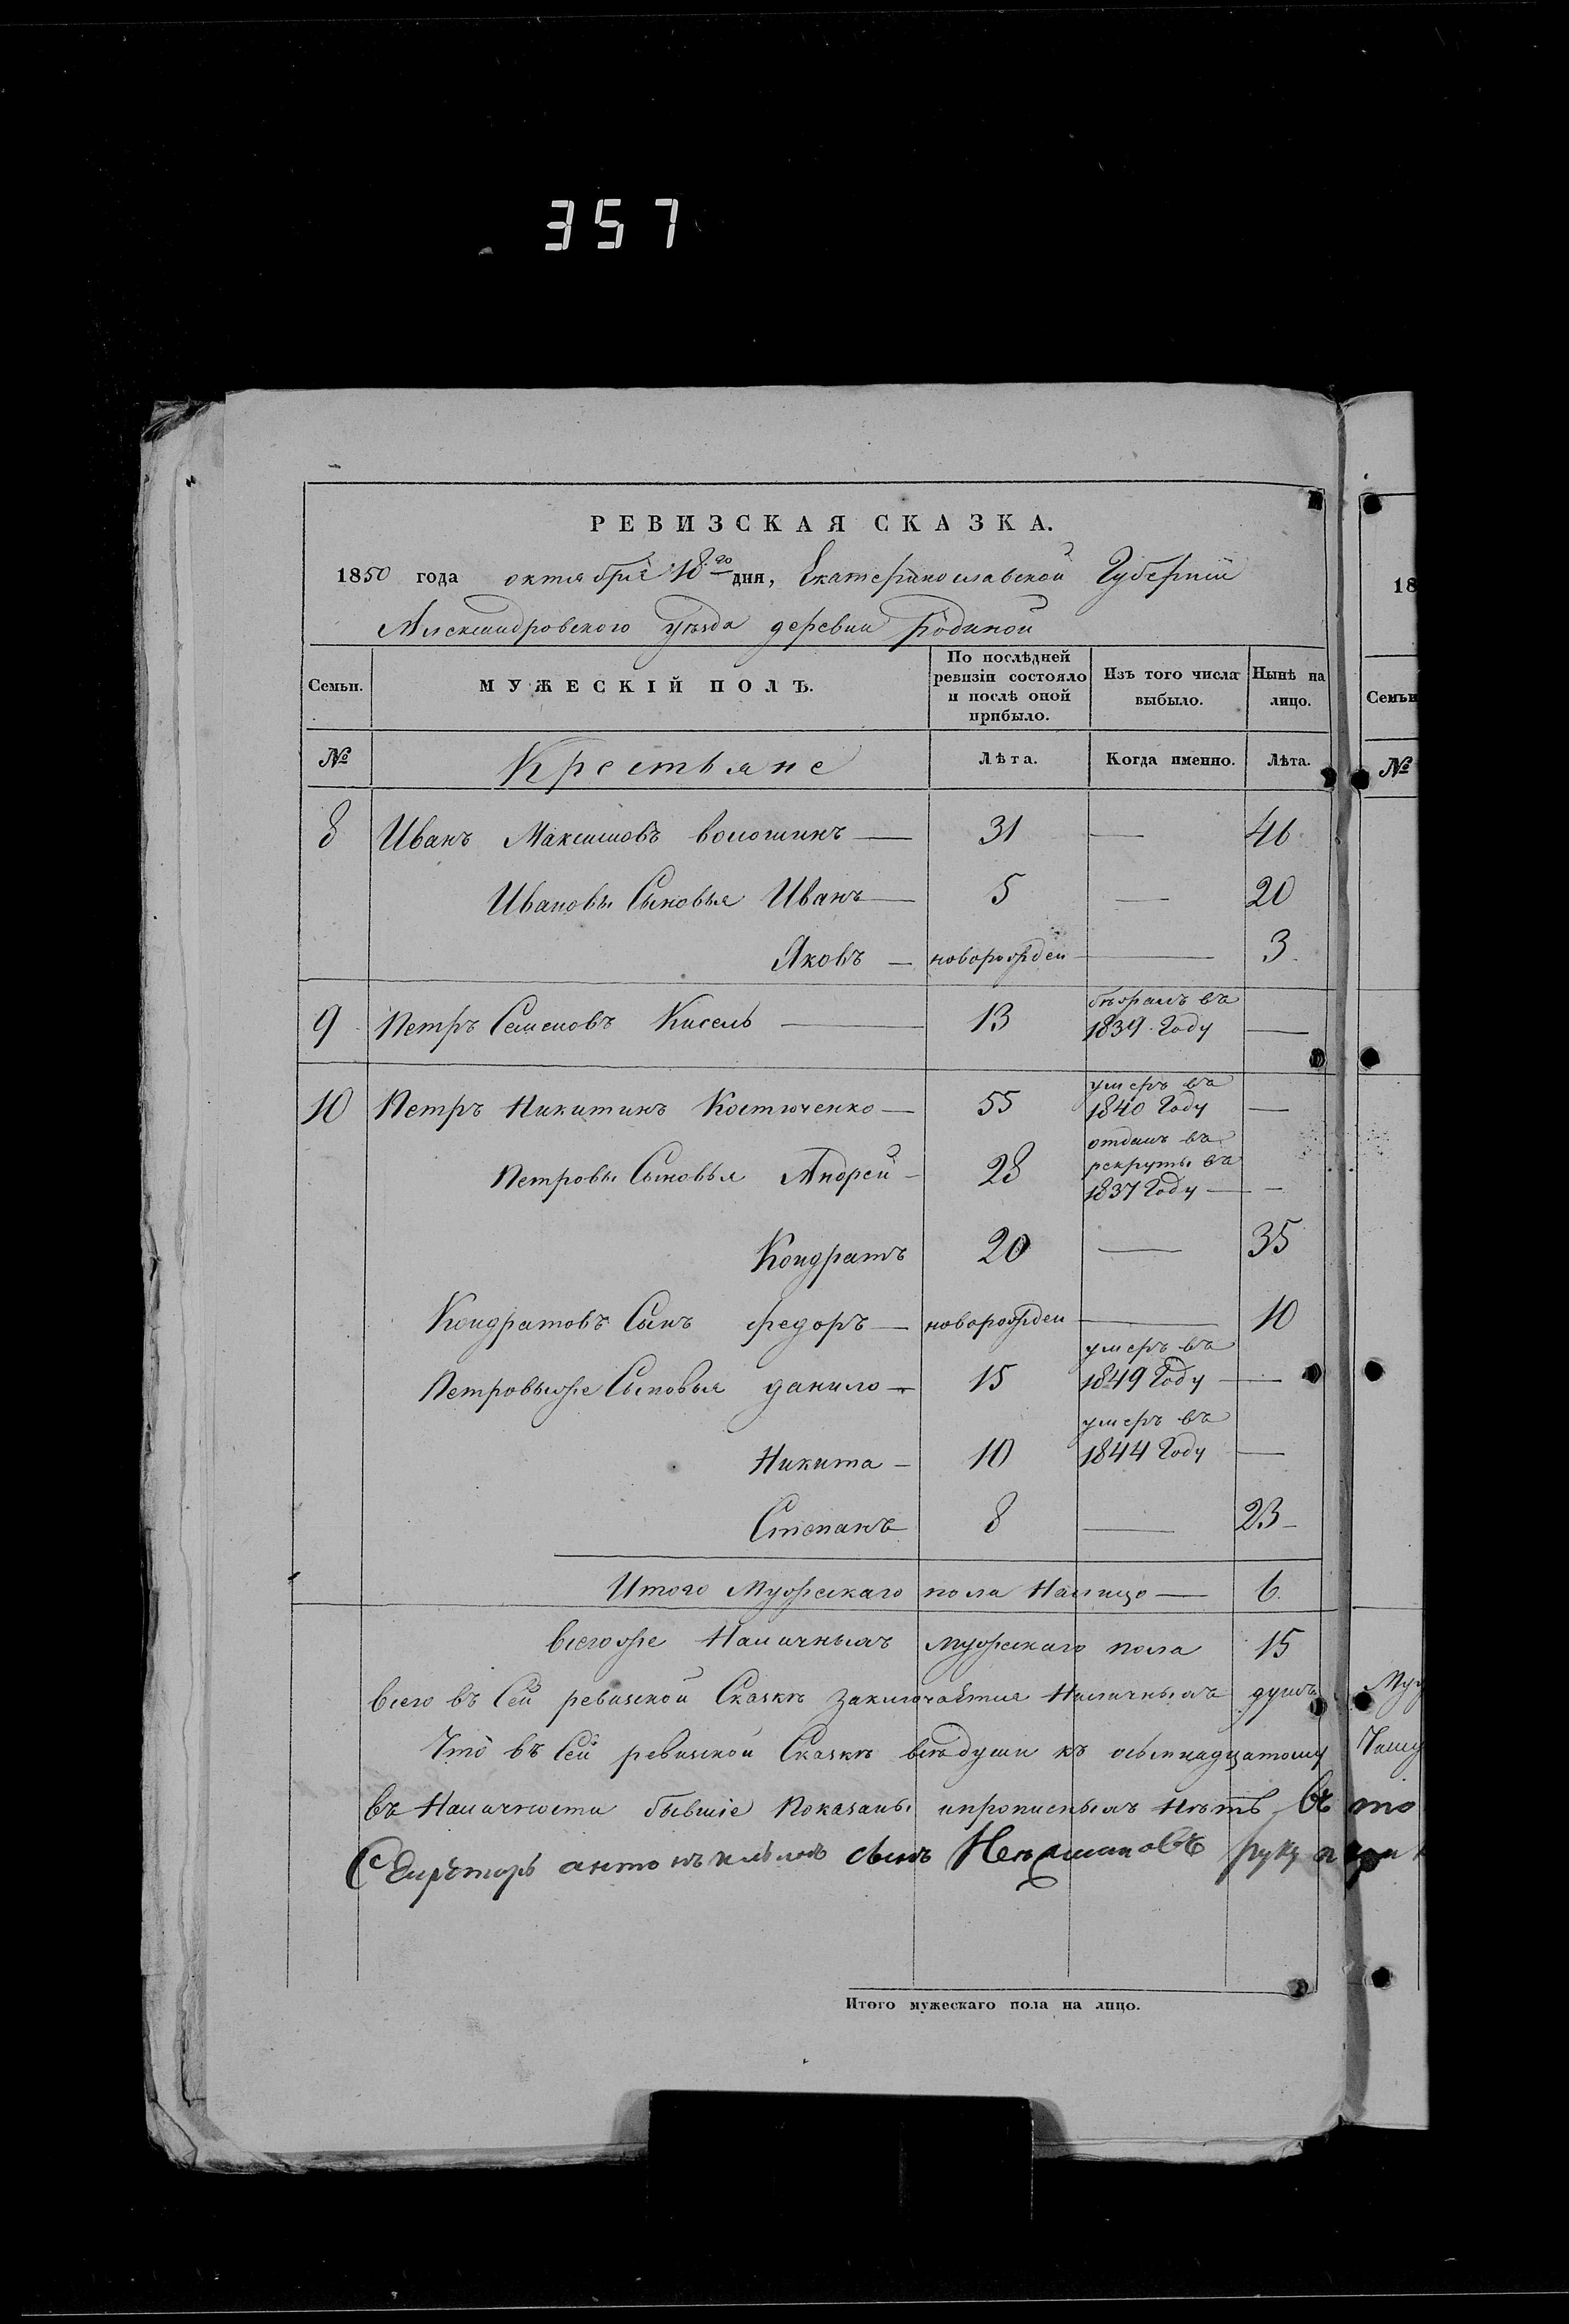 357
РЕВИЗСКАЯ СКАЗКА.
1850 года октября 18го дня, Екатеринославской Губернiи
Александровского уѣзда деревни Родиной
Семьи. МУЖЕСКIЙ ПОЛЪ. По послѣдней ревизiи состояло и послѣ оной прибыло. Изъ того числа выбыло. Нынѣ на лицо.
№ Крестьяне Лѣта. Когда именно. Лѣта.
8 Иванъ Максимовъ волошинъ — 31 — 46
Ивановы Сыновья Иванъ — 5 — 20
Яковъ — новорожден — 3
9 Петръ Семеновъ Кисель — 13 бѣжалъ въ 1839 Году —
10 Петръ Никитинъ Костюченко — 55 умеръ въ 1840 Году —
Петровы Сыновья Андрей — 28 отданъ въ рекруты въ 1837 Году —
Кондратъ 20 — 35
Кондратовъ Сынъ федоръ — новорожден — 10
Петровыже Сыновья данило — 15 умеръ въ 1849 Году —
Никита — 10 умеръ въ 1844 Году —
Степанъ 8 — 23
Итого Мужескаго пола Налицо — 6
всегоже Наличныхъ мужескаго пола 15
всего въ Сей ревизской Сказкѣ заключается Наличныхъ душъ
Что въ Сей ревизской Сказкѣ всѣ души къ осьмнадцатому
въ Наличности бывшiе Показаны ипрописныхъ Нѣтъ Въ то
сынъ руку
Итого мужескаго пола на лицо.
18
Семьи
№